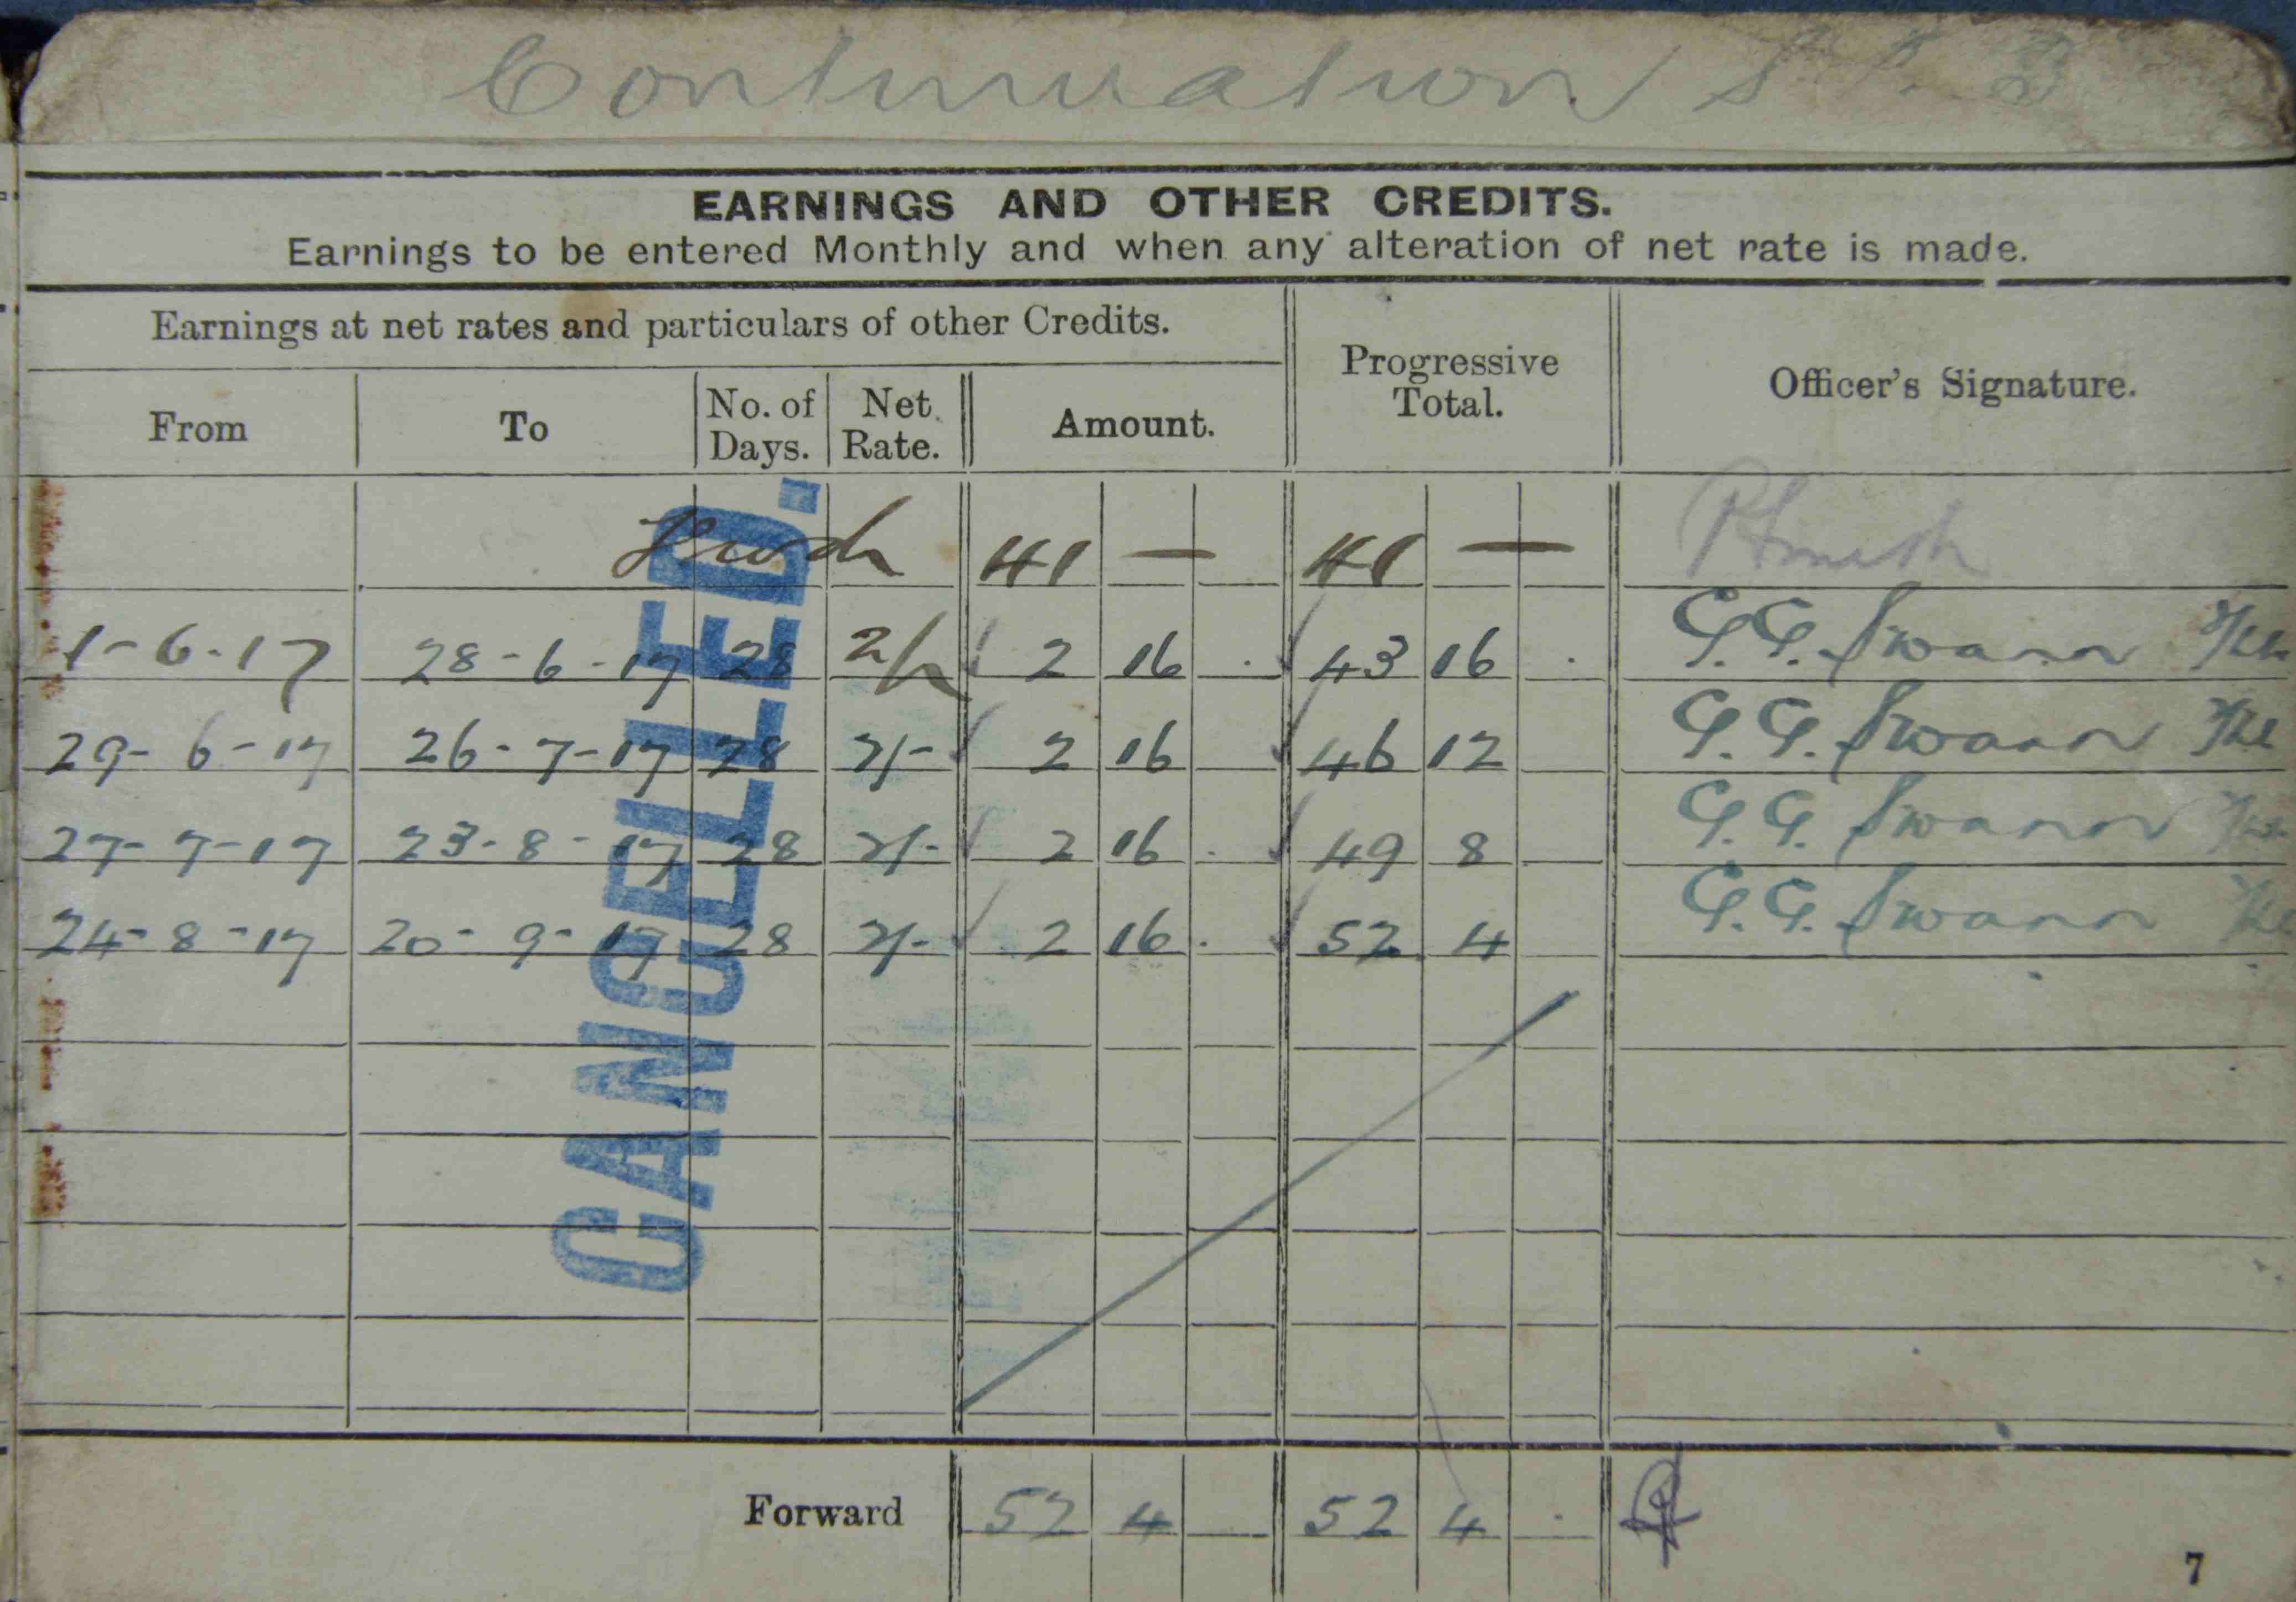 Continuation
EARNINGS AND OTHER CREDITS.
Earnings to be entered Monthly and when any alteration of net rate is made.
Earnings at net rates and particulars of other Credits.
Progressive Total.
Officer's Signature.
From To No. of Days. Net Rate. Amount.
41 — 41 —
1-6-17 28-6-17 28 2/- 2 16 . 43 16 . G.G. Swann
29-6-17 26-7-17 28 2/- 2 16 46 12 G.G. Swann
27-7-17 23-8-17 28 2/- 2 16 . 49 8 G.G. Swann
24-8-17 20-9-17 28 2/- 2 16 . 52 4 G.G. Swann
CANCELLED.
Forward 52 4 52 4 .
7